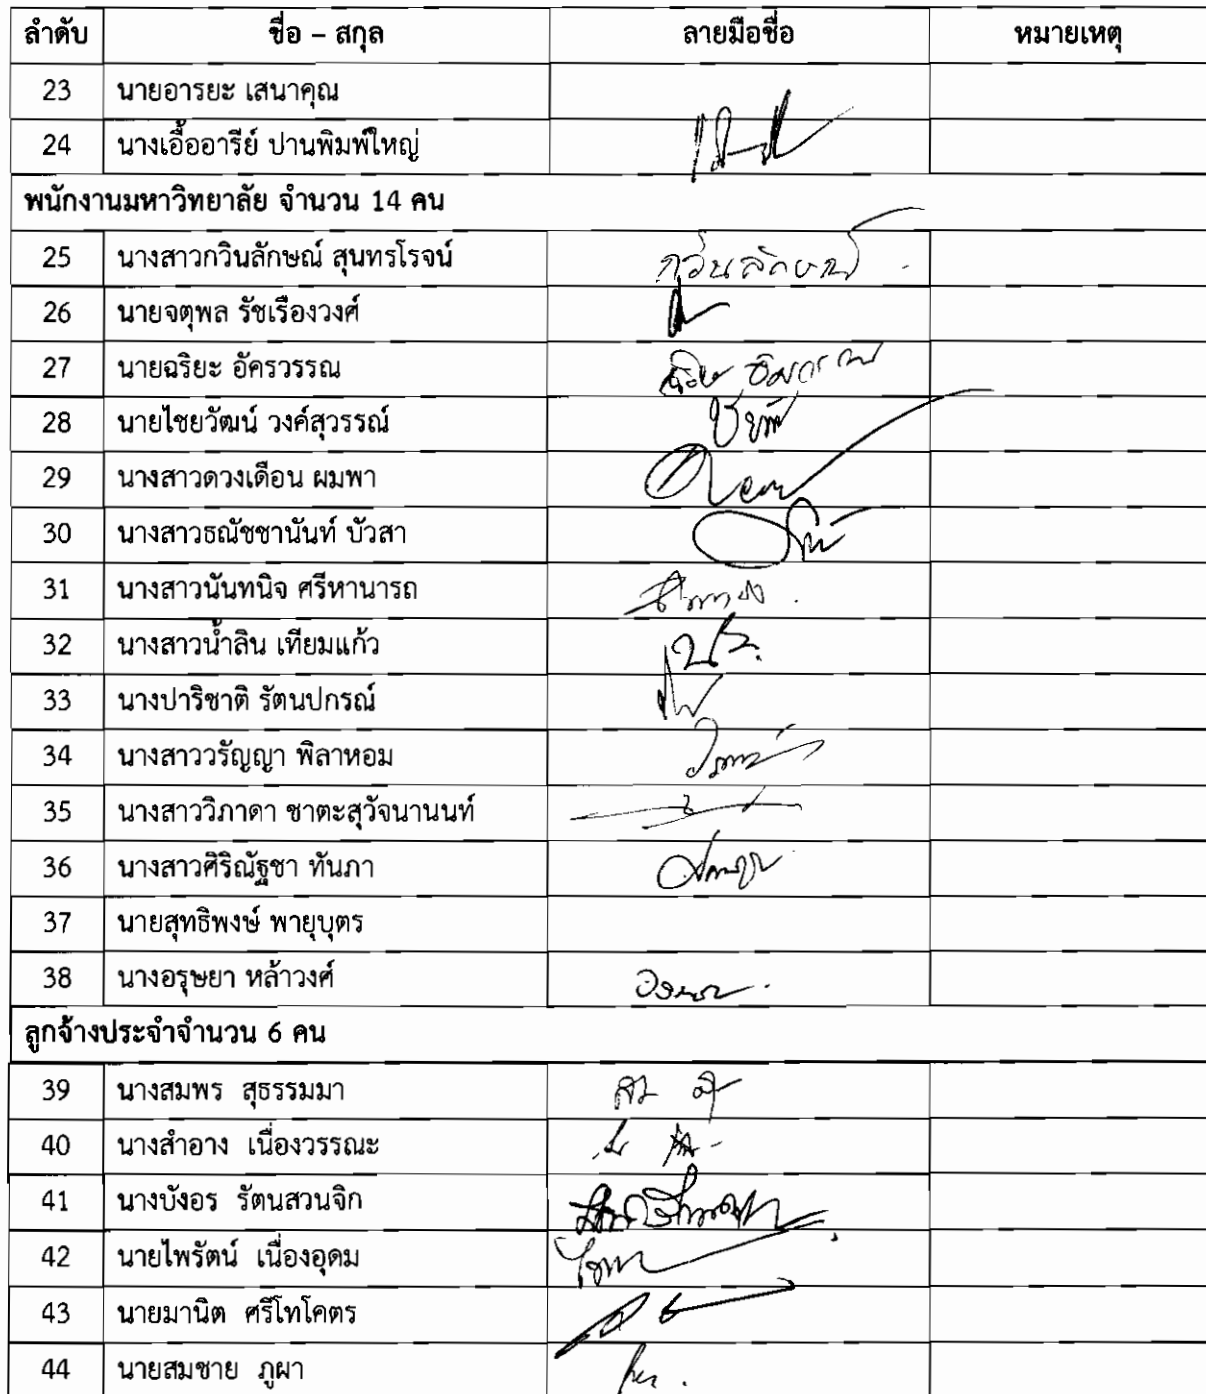 ลำดับ ชื่อ – สกุล ลายมือชื่อ หมายเหตุ
23 นายอารยะ เสนาคุณ
24 นางเอื้ออารีย์ ปานพิมพ์ใหญ่
พนักงานมหาวิทยาลัย จำนวน 14 คน
25 นางสาวกวินลักษณ์ สุนทรโรจน์ กวินลักษณ์
26 นายจตุพล รัชเรืองวงศ์
27 นายฉริยะ อัครวรรณ
28 นายไชยวัฒน์ วงค์สุวรรณ์
29 นางสาวดวงเดือน ผมพา
30 นางสาวธณัชชานันท์ บัวสา
31 นางสาวนันทนิจ ศรีหานารถ
32 นางสาวน้ำลิน เทียมแก้ว
33 นางปาริชาติ รัตนปกรณ์
34 นางสาววรัญญา พิลาหอม
35 นางสาววิภาดา ชาตะสุวัจนานนท์
36 นางสาวศิริณัฐชา ทันภา
37 นายสุทธิพงษ์ พายุบุตร
38 นางอรุษยา หล้าวงศ์
ลูกจ้างประจำจำนวน 6 คน
39 นางสมพร สุธรรมมา
40 นางสำอาง เนื่องวรรณะ
41 นางบังอร รัตนสวนจิก
42 นายไพรัตน์ เนื่องอุดม
43 นายมานิต ศรีโทโคตร
44 นายสมชาย ภูผา